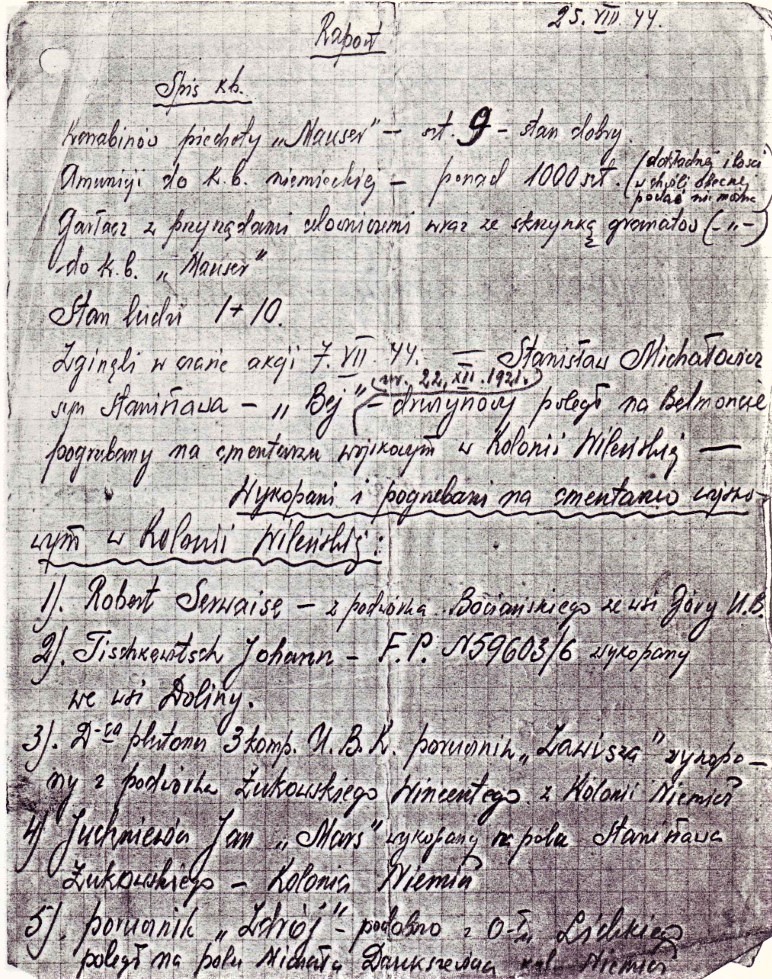 25. VIII. 44.
Raport
Spis k.b.
Karabinów piechoty „Mauser” — szt. 9 - stan dobry.
Amunicji do k.b. niemieckiej — ponad 1000 szt. (dokładnej ilości
w chwili obecnej
podać nie można)
Garłacz z przyrządami celowniczemi wraz ze skrzynką granatów (-„-)
do k.b. „Mauser”
Stan ludzi 1+10.
Zginęli w czasie akcji 7. VII. 44. — Stanisław Michałowicz
(ur. 22. XII. 1921.)
syn Stanisława - „Bej” - drużynowy poległ na Belmoncie
pogrzebany na cmentarzu wojskowym w Kolonii Wileńskiej —
Wykopani i pogrzebani na cmentarzu wojsko-
wym w Kolonii Wileńskiej:
1). Robert Serwaise - z podwórka Bociańskiego ze wsi Góry
2). Tischkewitsch Johann - F.P. N59603/6 wykopany
we wsi Doliny.
3). D-ca plutonu 3 komp. U.B.K. porucznik „Zawisza” wykopa-
ny z podwórka Żukowskiego Wincentego z Kolonii Niemież
4) Juchniewicz Jan „Mars” wykopany z pola Stanisława
Żukowskiego - Kolonia Niemież
5). porucznik „Zdrój” - podobno z O-łu Lidzkiego
poległ na polu Michała kol. Niemież